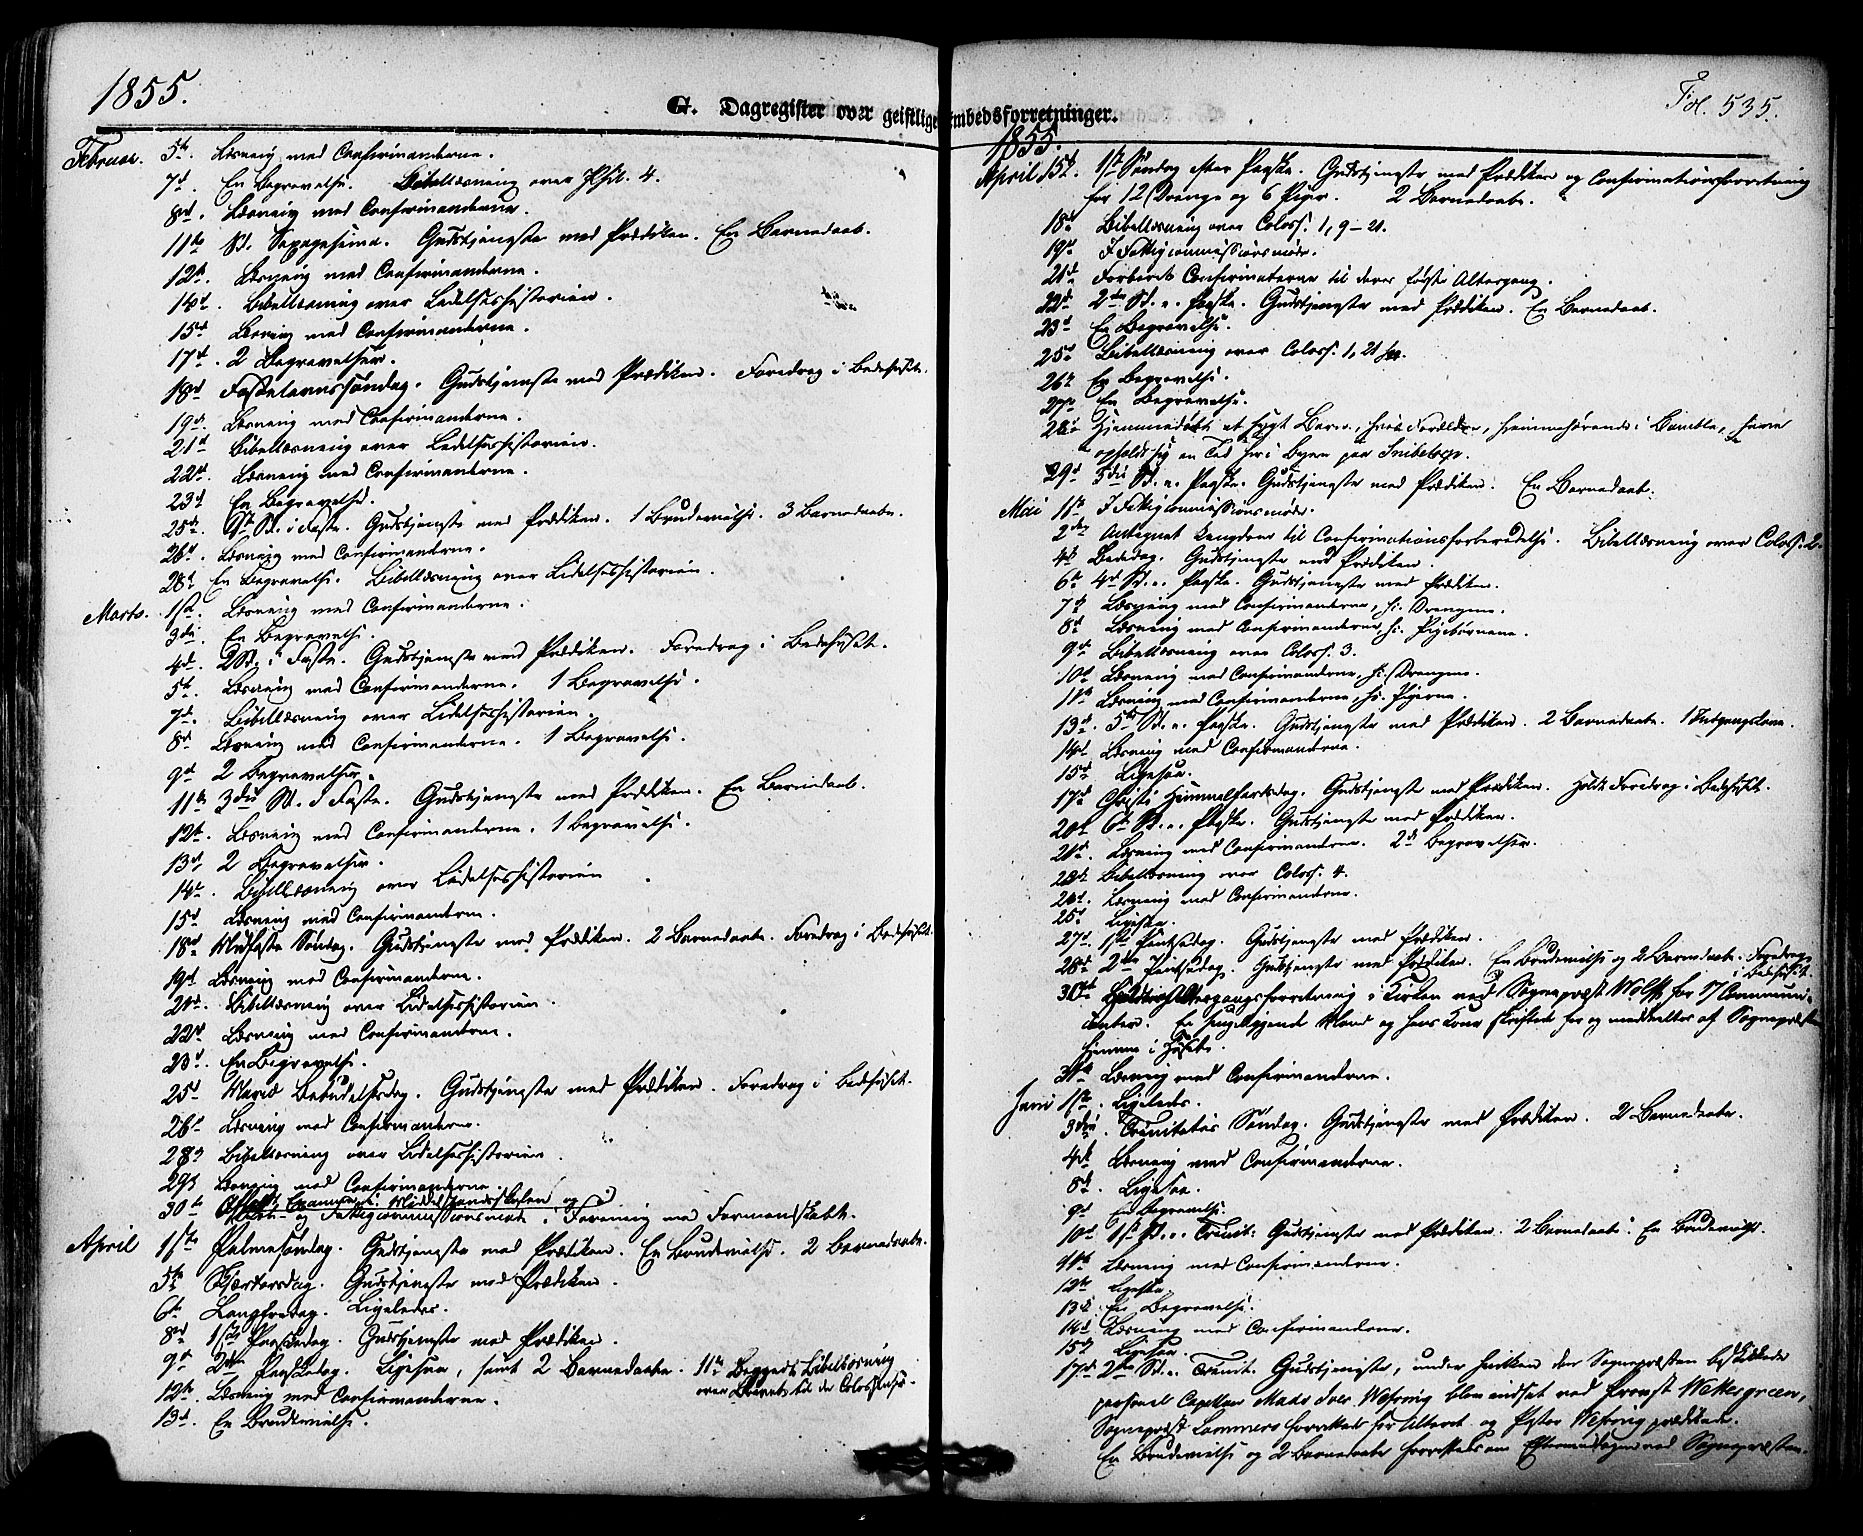 1855.
G. Dagregister over geistlige Embedsforretninger.
Februar. 5te. Læsning med Confirmanderne.
7d. En Begravelse. Bibellæsning over Phil. 4.
8d. Læsning med Confirmanderne.
11te Sd. Sexagesima. Gudstjeneste med Prædiken. En Barnedaab.
12te. Læsning med Confirmanderne.
14d. Bibellæsning over Lidelseshistorien.
15d Læsning med Confirmanderne.
17d. 2 Begravelser.
18d Fastelavnssøndag. Gudstjeneste med Prædiken. Foredrag i Bedehuset.
19d. Læsning med Confirmanderne.
21d Bibellæsning over Lidelseshistorien.
22d. Læsning med Confirmanderne.
23d. En Begravelse.
25d. 1st Sd. i Faste. Gudstjeneste med Prædiken. 1 Brudevielse. 3 Barnedaabe.
26d. Læsning med Confirmanderne.
28d En Begravelse. Bibellæsning over Lidelseshistorien.
Marts. 1ste. Læsning med Confirmanderne.
3die. En Begravelse.
4d. 2 Sd. i Faste. Gudstjeneste med Prædiken. Foredrag i Bedehuset.
5te. Læsning med Confirmanderne. 1 Begravelse.
7d. Bibellæsning over Lidelseshistorien.
8d Læsning med Confirmanderne. 1 Begravelse.
9d 2 Begravelser.
11te 3die Sd. i Faste. Gudstjeneste med Prædiken. En Barnedaab.
12te. Læsning med Confirmanderne. 1 Begravelse.
13d 2 Begravelser.
14d. Bibellæsning over Lidelseshistorien
15d Læsning med Confirmanderne.
18d Midfaste Søndag. Gudstjeneste med Prædiken. 2 Barnedaabe. Foredrag i Bedehuset.
19d Læsning med Confirmanderne.
21d. Bibellæsning over Lidelseshistorien.
22d Læsning med Confirmanderne.
23d. En Begravelse.
25d Mariæ Bebudelsesdag. Gudstjeneste med Prædiken. Foredrag i Bedehuset.
26d Læsning med Confirmanderne.
28d Bibellæsning over Lidelseshistorien.
29d Læsning med Confirmanderne.
30te Examen i Middelstandsskolen og
og Fattigcommissionsmøde i Forening med Formandskabet.
April 1ste Palmesøndag. Gudstjeneste med Prædiken. En Brudevielse. 2 Barnedaabe.
5te Skjærtorsdag. Gudstjeneste med Prædiken.
6te Langfredag. Ligeledes.
8d 1ste Paaskedag. Gudstjeneste med Prædiken.
9d 2den Paaskedag. Ligesaa, samt 2 Barnedaabe. 11te Bibellæsning
over Brevet til de Colossenser.
12te. Læsning med Confirmanderne.
13d. En Brudevielse.
Fol. 535.
1855.
April 15d. 1ste Søndag efter Paaske. Gudstjeneste med Prædiken og Confirmationsforretning
for 12 Drenge og 6 Piger. 2 Barnedaabe.
18d Bibellæsning over Coloss: 1, 9-21.
19d I Fattigcommissionsmøde.
21d Forberedt Confirmaterne til deres første Altergang.
22d 2den Sd. e. Paaske. Gudstjeneste med Prædiken. En Barnedaab.
23d En Begravelse.
25d Bibellæsning over Coloss: 1, 21
26d En Begravelse.
27d En Begravelse.
28d Hjemmedøbt et sygt Barn, hvis Forældre, hjemmehørende i Bamble,
opholdt sig en Tid her i Byen paa Snibetorp.
29d 3die Sd. e. Paaske. Gudstjeneste med Prædiken. En Barnedaab.
Mai 1ste I Fattigcommissionsmøde.
2den Antegnet Ungdom til Confirmationsforberedelse. Bibellæsning over Coloss: 2.
4d Bededag. Gudstjeneste med Prædiken.
6te 4d Sd. e. Paaske. Gudstjeneste med Prædiken.
7d Læsning med Confirmanderne, Drengene.
8d Læsning med Confirmanderne, Pigebørnene.
9d Bibellæsning over Coloss: 3.
10d Læsning med Confirmanderne, Drengene.
11te Læsning med Confirmanderne, Pigerne.
13d. 5te Sd. e. Paaske. Gudstjeneste med Prædiken. 2 Barnedaabe. 1 Indgangskone.
14d Læsning med Confirmanderne.
15d Ligesaa.
17d Christi Himmelfartsdag. Gudstjeneste med Prædiken. Holdt Foredrag i Bedehuset.
20d 6te Sd. e. Paaske. Gudstjeneste med Prædiken.
21d. Læsning med Confirmanderne. 2 Begravelser.
Bibellæsning over Coloss: 4.
24d. Læsning med Confirmanderne.
25d Ligesaa.
27d. 1ste Pintsedag. Gudstjeneste med Prædiken.
28d 2den Pintsedag. Gudstjeneste med Prædiken. En Brudevielse og 2 Barnedaabe. Foredrag
i Bedehuset.
30d Altergangsforretning i Kirken ved Sognepræst Wolff for 17 Communi-
canter. En sengeliggende Mand og hans Kone skriftede for og meddeeltes af Sognepræsten
hjemme i Huset.
31te Læsning med Confirmanderne.
Juni 1ste. Ligeledes.
3die. Trinitatis Søndag. Gudstjeneste med Prædiken. 2 Barnedaabe.
4d Læsning med Confirmanderne.
8d. Ligesaa.
9d En Begravelse.
10d 1ste Sd. e. Trinit: Gudstjeneste med Prædiken. 2 Barnedaabe. En Brudevielse.
11te Læsning med Confirmanderne.
12te Ligesaa
13d En Begravelse.
14d Læsning med Confirmanderne.
15d Ligesaa.
17d 2den Sd. e. Trinit. Gudstjeneste, under hvilken den Sognepræsten beskikkede
personel Capellan blev indsat ved Provst Wettergreen,
Sognepræst Lammers forrettede for Alteret og Pastor prædikede.
En Brudevielse og 2 Barnedaabe forrettedes om Eftermiddagen ved Sognepræsten.